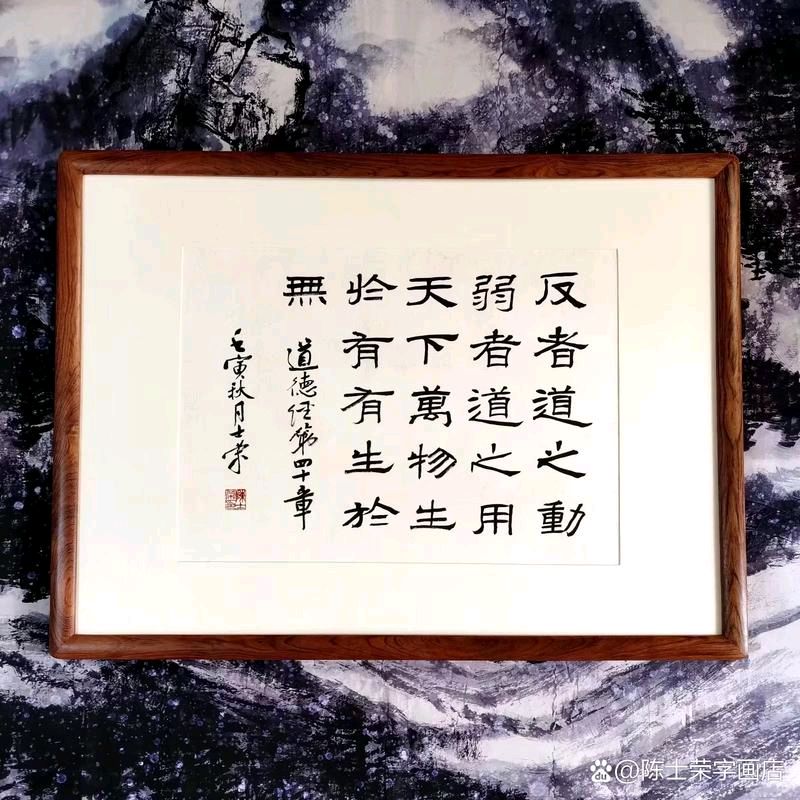 反者道之動
弱者道之用
天下萬物生
於有有生於
無
道德经第四十章
壬寅秋月士荣
@陈士荣字画店